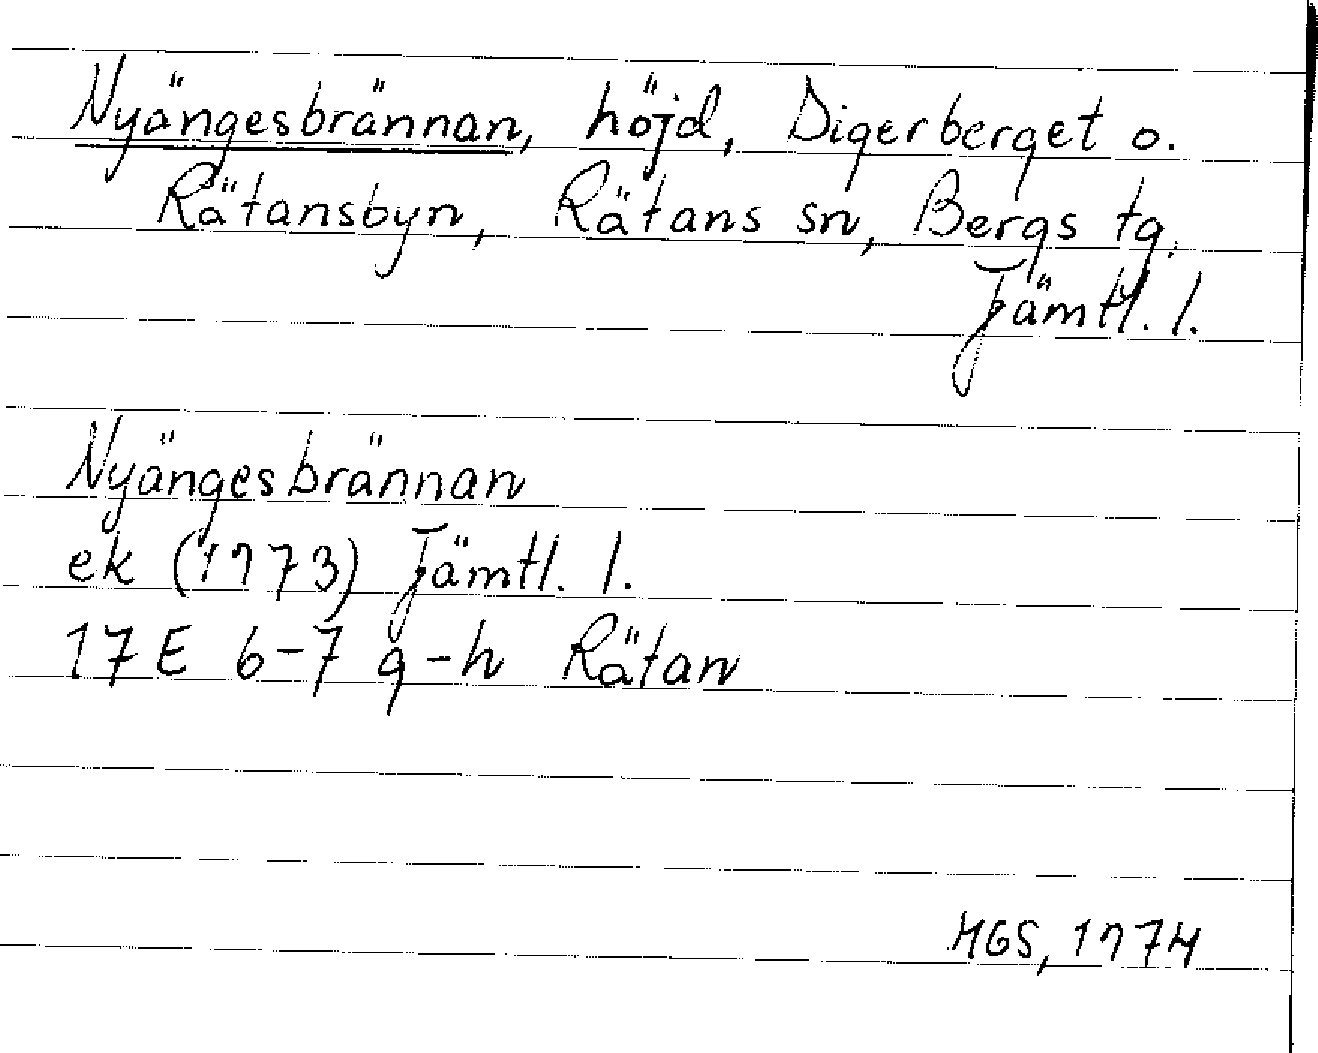 Nyängesbrännan, höjd, Digerberget o.
Rätansbyn, Rätans sn, Bergs tg,
Jämtl. l.
Nyängesbrännan
ek (1973) Jämtl. l.
17E 6-7 g-h Rätan
MGS, 1974